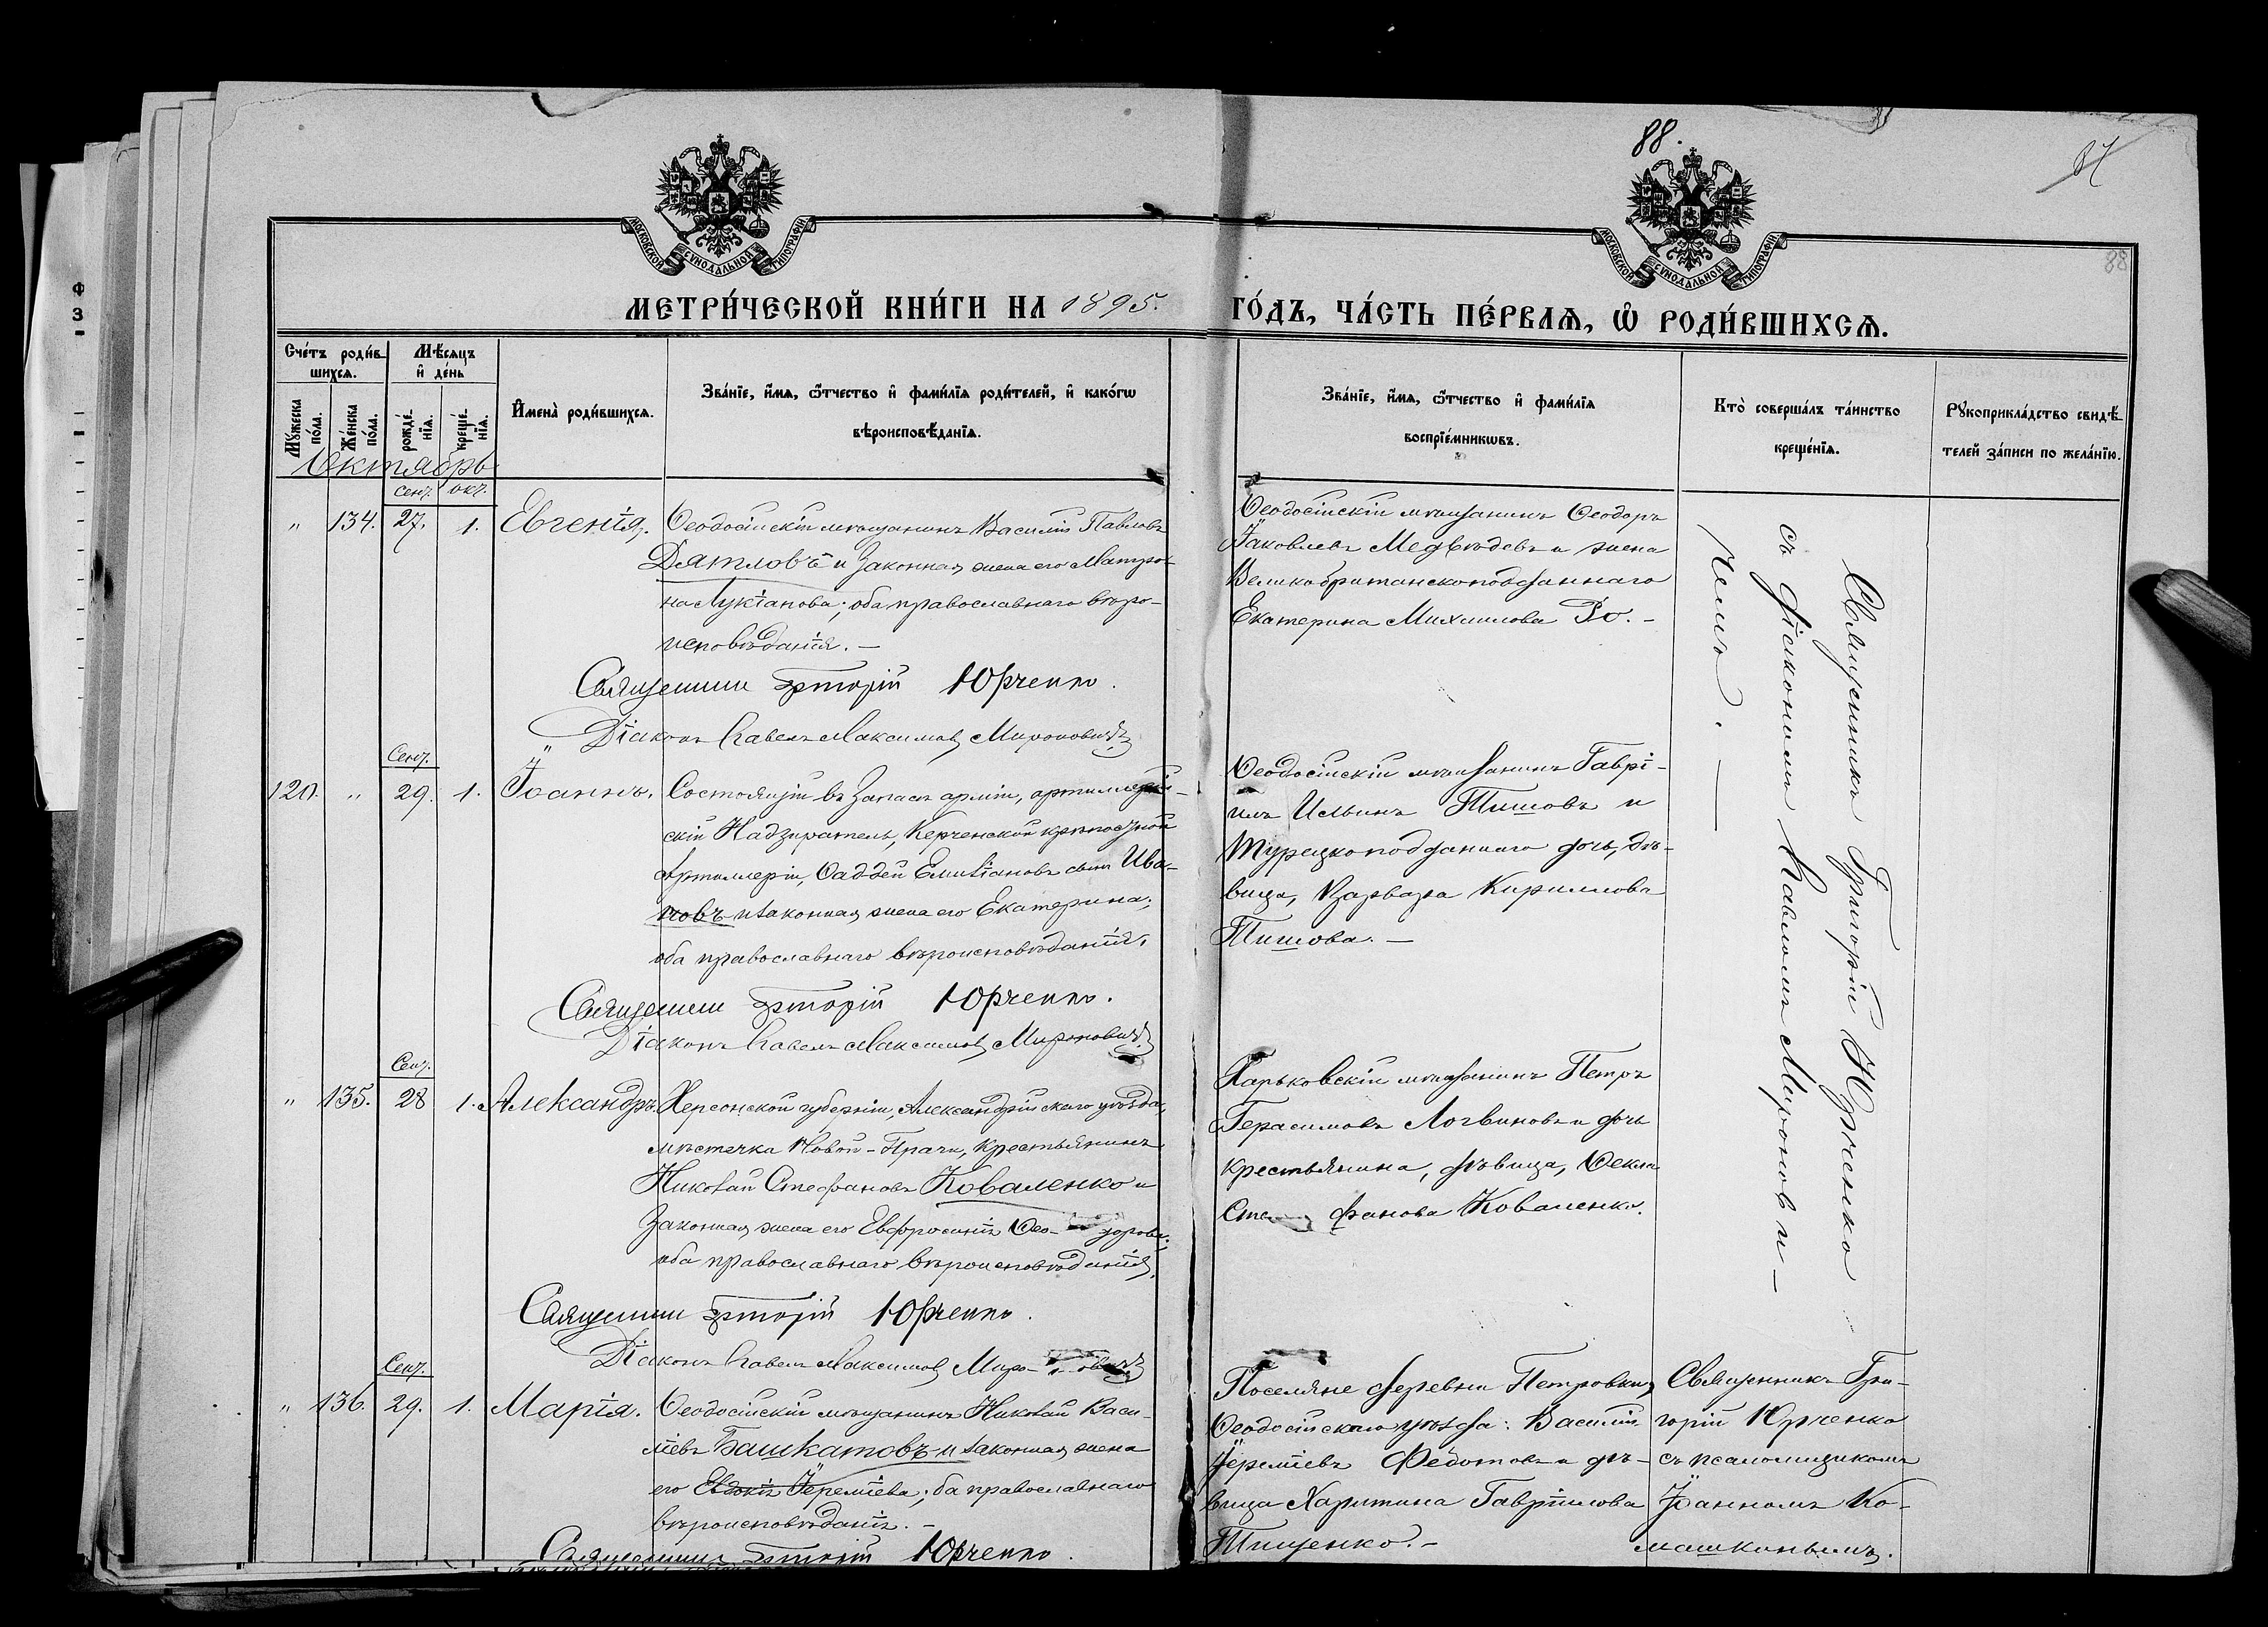 88.
87
88
МОСКОВСКОЙ СѴНОДАЛЬНОЙ ТИПОГРАФІИ
МОСКОВСКОЙ СѴНОДАЛЬНОЙ ТИПОГРАФІИ
МЕТРИ́ЧЕСКОЙ КНИ́ГИ НА 1895. ГО́ДЪ, ЧА́СТЬ ПЕ́РВАѦ, Ѡ҆ РОДИ́ВШИХСѦ.
Сче́тъ роди́в-
шихсѧ.
Мѣ́сѧцъ
и҆ де́нь
Мꙋ́жеска
по́ла.
Же́нска
по́ла.
рожде́-
нїѧ.
креще́-
нїѧ.
И҆мена̀ роди́вшихсѧ.
Зва́нїе, и҆́мѧ, ѻ҆́тчество и҆ фами́лїѧ роди́телей, и҆ како́гѡ
вѣроисповѣ́данїѧ.
Зва́нїе, и҆́мѧ, ѻ҆́тчество и҆ фами́лїѧ
воспрїе́мникѡвъ.
Кто̀ соверша́лъ та́инство
креще́нїѧ.
Рꙋкоприкла́дство свидѣ́-
телей за́писи по жела́нїю.
Октябрь
Сент. окт.
„ 134. 27. 1. Евгенія.
Ѳеодосійскій мѣщанинъ Василій Павловъ
Дятловъ и законная жена его Матро-
на Лукіанова; оба православнаго вѣро-
исповѣданія. —
Священникъ Григорій Юрченко.
Діаконъ Павелъ Максимовъ Мироновичъ
Ѳеодосійскій мѣщанинъ Ѳеодоръ
Яковлевъ Медвѣдевъ и жена
Великобританскоподданнаго
Екатерина Михаилова Ро. –
Священникъ Григорій Юрченко
съ діакономъ Павломъ Миронови-
чемъ. —
Сент.
120. „ 29. 1. Іоаннъ.
Состоящій въ запасѣ арміи, артиллерій-
скій Надзиратель, Керченской крѣпостной
Артиллеріи, Ѳаддей Емиліановъ сынъ Ива-
новъ и законная жена его Екатерина;
оба православнаго вѣроисповѣданія.
Священникъ Григорій Юрченко.
Діаконъ Павелъ Максимовъ Мироновичъ
Ѳеодосійскій мѣщанинъ Гаврі-
илъ Ильинъ Тишовъ и
Турецкоподданнаго дочь, дѣ-
вица, Варвара Кириллова
Тишова. —
Сент.
„ 135. 28 1. Александра.
Херсонской губерніи, Александрійскаго уѣзда,
мѣстечка Новой-Праги, крестьянинъ
Николай Стефановъ Коваленко и
законная жена его Евфросинія Ѳео- дорова;
оба православнаго вѣроисповѣданія.
Священникъ Григорій Юрченко.
Діаконъ Павелъ Максимовъ Миро- новичъ
Харьковскій мѣщанинъ Петръ
Герасимовъ Логвиновъ и дочь
крестьянина, дѣвица, Ѳекла
Сте- фанова Коваленко.
Сент.
„ 136. 29. 1. Марія.
Ѳеодосійскій мѣщанинъ Николай Васи-
ліевъ Башкатовъ и законная жена
его Евдокія Іереміева; оба православнаго
вѣроисповѣданія. –
Священникъ Григорій Юрченко.
Поселяне деревни Петровки,
Ѳеодосійскаго уѣзда: Василій
Іереміевъ Федотовъ и дѣ-
вица Харитина Гавріилова
Тищенко. –
Священникъ Гри-
горій Юрченко
съ псаломщикомъ
Іоанномъ Ко-
машконьемъ.